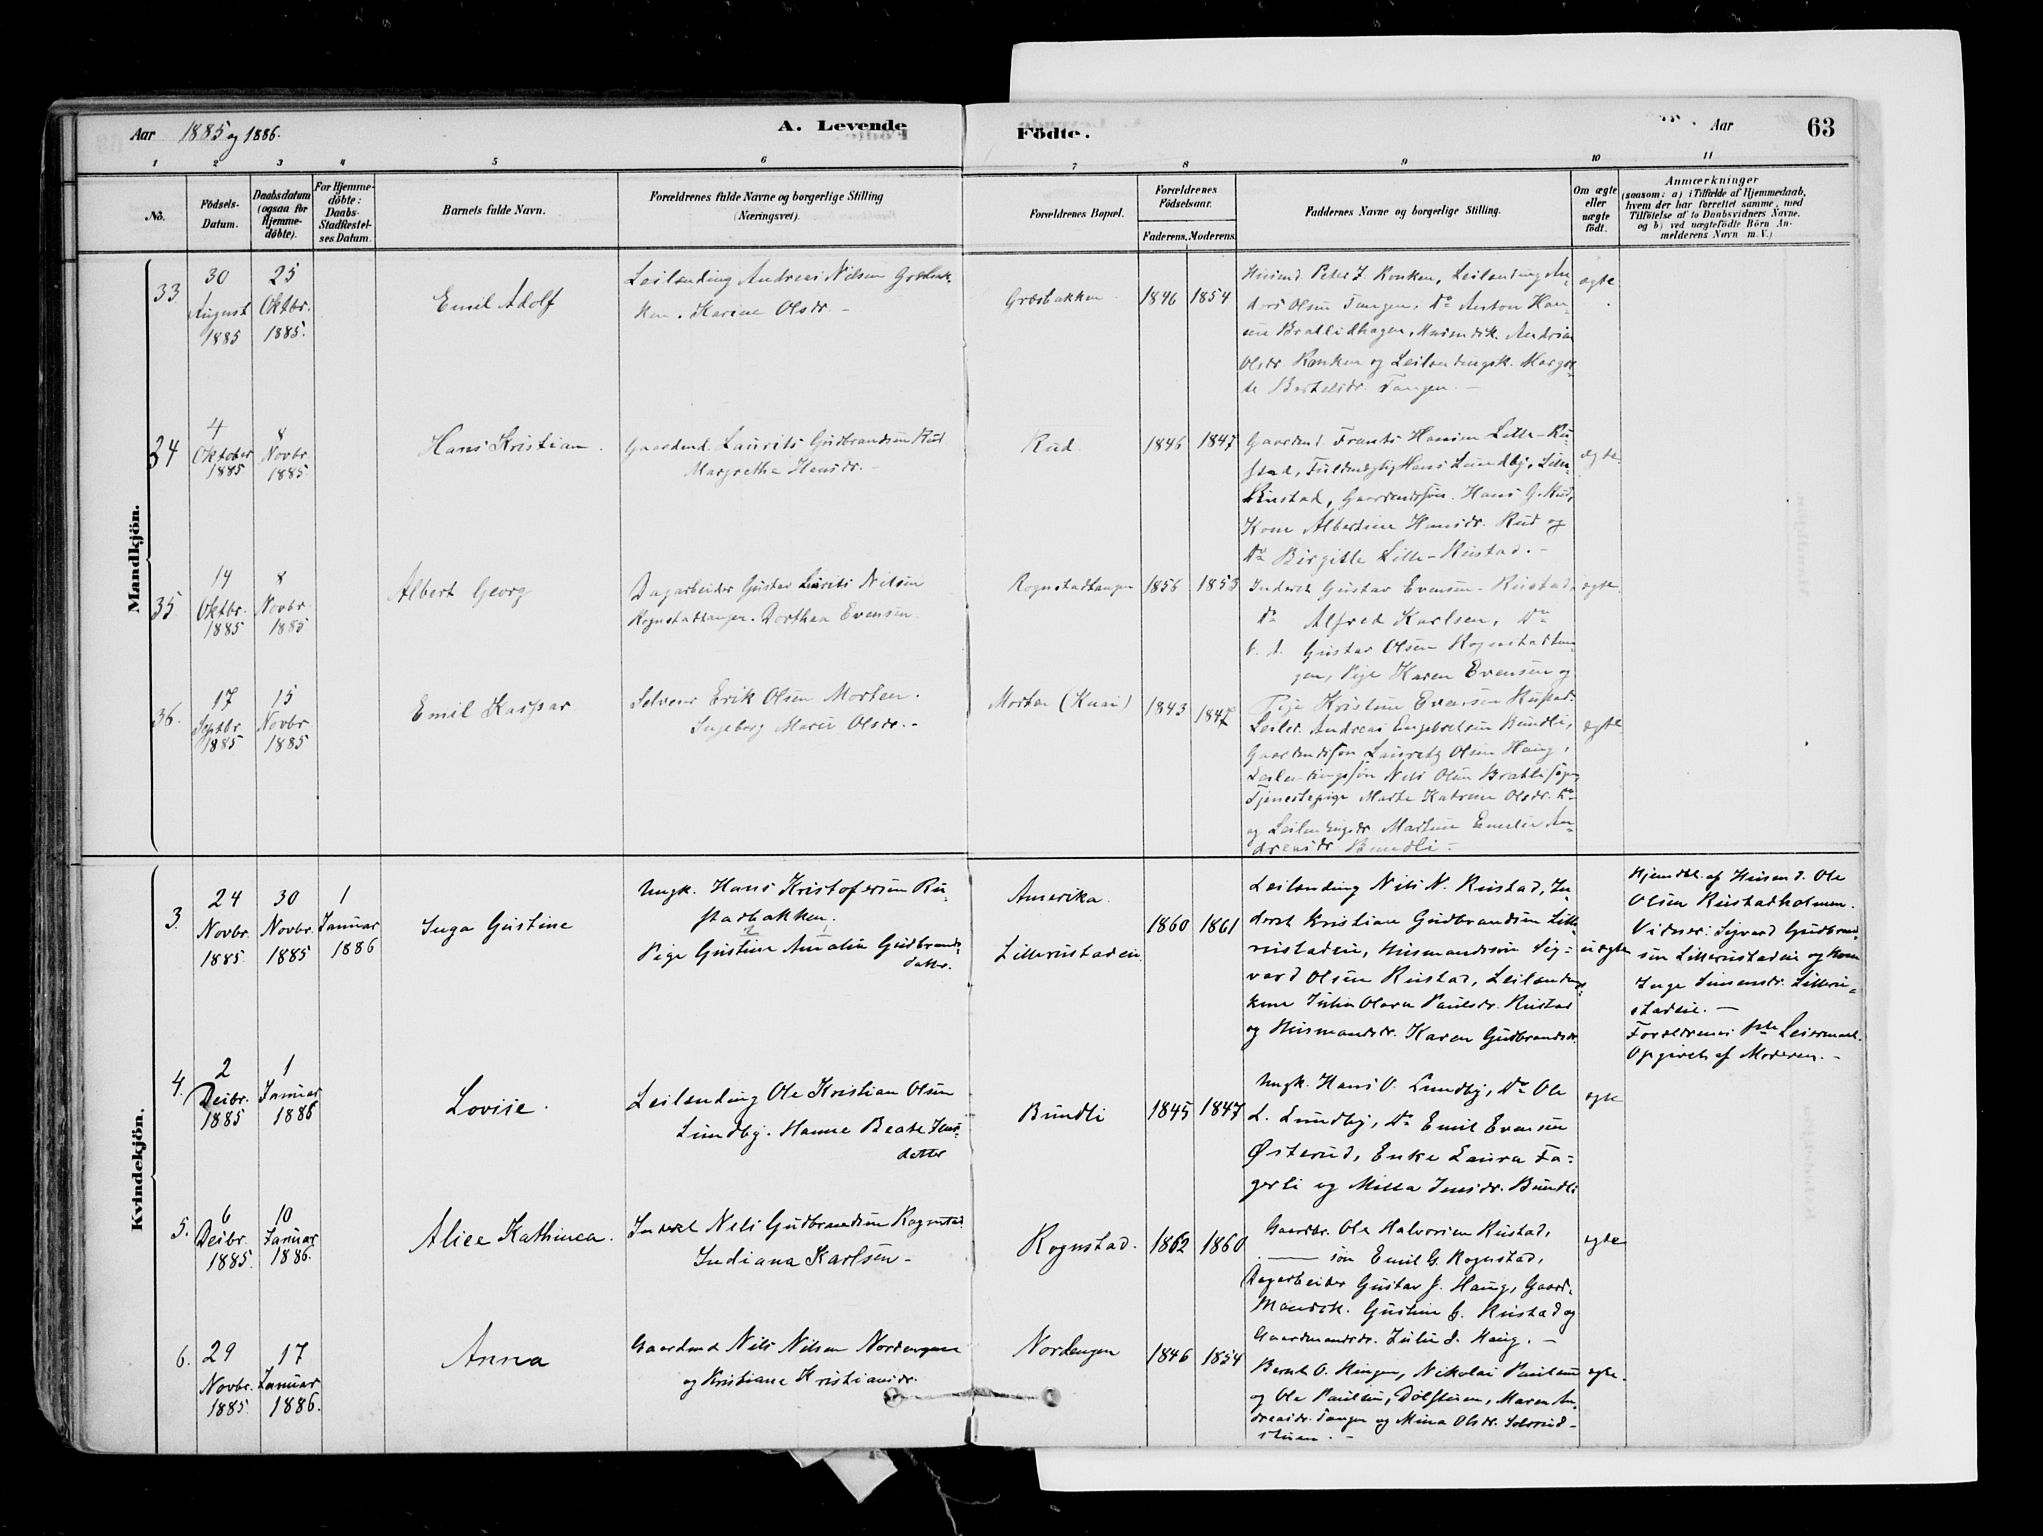 Aar 1885 og 1886.
A. Levende Födte.
Aar 63
1 2 3 4 5 6 7 8 9 10 11
No.
Födsels-Datum.
Daabsdatum (ogsaa for Hjemme-döbte).
For Hjemme-döbte: Daabs-Stadfæstel-ses Datum.
Barnets fulde Navn.
Forældrenes fulde Navne og borgerlige Stilling
(Næringsvei).
Forældrenes Bopæl.
Forældrenes Födselsaar.
Faderens. Moderens.
Faddernes Navne og borgerlige Stilling.
Om ægte eller uægte födt.
Anmærkninger
(saasom: a) i Tilfælde af Hjemmedaab,
hvem der har forrettet samme, med
Tilföielse af to Daabsvidners Navne,
og b) ved uægtefödte Börn An-
melderens Navn m. V.)
Mandkjön.
33.
30 August 1885
25 Oktbr. 1885.
Emil Adolf
Leilænding Andreas Nilsen Græsbak-
ken. Karine Olsdr. -
Græsbakken
1846 1854
Husmd Peter J. Konken, Leilænding An-
ders Olsen Tangen, Do Anton Han-
sen Bratlidhagen, Husmdsk. Andrine
Olsdr. Konken og Leilændingsk. Margre-
te Bertelsdr. Tangen. -
ægte
34
4 Oktober 1885
8 Novbr. 1885.
Hans Kristian.
Gaardmd. Laurits Gudbrandsen Rud
Margrethe Hansdr. -
Rud.
1846 1847
Gaardmd Frants Hansen Lille-Ru-
stad, Fuldmægtig Hans Lundby, Lille-
Rustad, Gaardmdssøn. Hans G. Rud,
Kone Albertine Hansdr. Rud og
Do Birgitte Lille-Rustad. -
ægte.
35.
14 Oktbr. 1885
8 Novbr. 1885
Albert Georg
Dagarbeider Gustav Laurits Nilsen
Rognstadtangen. Dorthea Evensen.
Rognstadtangen
1856 1853
Inderst Gustav Evensen Rustad,
Do Alfred Karlsen, Do
Gustav Olsen Rognstadtan-
gen, Pige Karen Evensen og
Pige Kristine Evensen Rustad.
ægte
36.
17 Septbr. 1885
15 Novbr. 1885
Emil Kaspar
Selveier Erik Olsen Morten.
Ingeborg Marie Olsdr. -
Morten (Kuai)
1843 1847
Leilæ. Andreas Engebretsen Bundli,
Gaardmdssøn Lauritz Olsen Haug,
Leilændingssøn Nils Olsen
Tjenestepige Marte Katrine Olsdr. Do
og Leilændingsdr. Martine Emilie An-
dreasdr. Bundli -
ægte
Kvindekjön.
3.
24 Novbr. 1885.
30 Novbr. 1885
1 Januar 1886
Inga Gustine
Ungk. Hans Kristofersen Ru-
stadbakken.
Pige Gustine Amalie Gudbrands-
datter.
Amerika.
Lillerustadeie
1860 1861
Leilænding Nils N. Rustad, In-
derst Kristian Gudbrandsen Lille-
rustadeie, Husmandssøn Sig-
vard Olsen Rustad, Leilændings-
kone Julie Olava Paulsdr. Rustad
og Husmandsdr. Karen Gudbrandsdr.
uægte
Hjemdbt. af Husmd. Ole
Olsen Rustadholmen.
Vidner: Sigvard Gudbrand-
sen Lillerustadeie og Kone
Inge Simensdr. Lilleru-
stadeie. -
Forældrenes 1ste Leiermaal.
Opgivet af Moderen. -
4.
2 Decbr. 1885
1 Januar 1886
Lovise.
Leilænding Ole Kristian Olsen
Lundby. Hanne Beate Jens-
datter
Bundli
1845 1847
Ungk. Hans O. Lundby, Do Ole
L. Lundby, Do Emil Evensen
Østerud, Enke Laura Fa-
gerli og Milla Jensdr. Bundli
ægte
5.
6 Decbr. 1885.
10 Januar 1886.
Alice Kathinca.
Inderst Nils Gudbrandsen Rognstad
Indiana Karlsen -
Rognstad.
1862 1860
Gaardbr. Ole Halvorsen Rustad,
—— søn Emil G. Rognstad,
Dagarbeider Gustav J. Haug, Gaard-
Mandsk. Gustine G. Rustad og
Gaardmandsdr. Julie J. Haug. -
ægte
6.
29 Novbr. 1885.
17 Januar 1886.
Anna
Gaardmd Nils Nilsen Nordengen
og Kristiane Kristiansdr.
Nordengen
1846 1854
Bernt O. Hingen, Nikolai Paulsen
og Ole Paulsen, Dølsteien, Maren An-
dreasdr. Tangen og Mina Olsdr.
stuen. -
ægte.